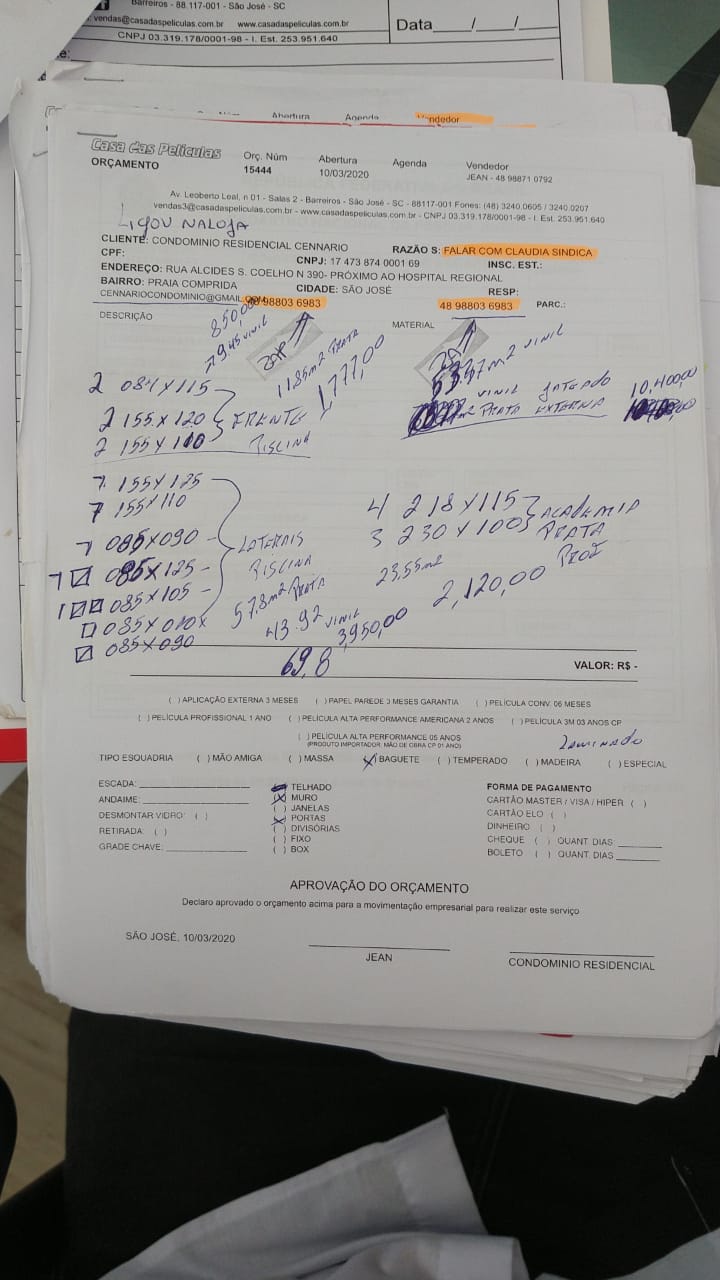 Barreiros - 88.117-001 - São José - SC
vendas@casadaspeliculas.com.br www.casadaspeliculas.com.br
CNPJ 03.319.178/0001-98 - I. Est. 253.951.640
Data___/___/___
Abertura Agenda Vendedor
Casa das Películas
ORÇAMENTO
Orç. Núm Abertura Agenda Vendedor
15444 10/03/2020 JEAN - 48 98871 0792
Av. Leoberto Leal, n 01 - Salas 2 - Barreiros - São José - SC - 88117-001 Fones: (48) 3240.0605 / 3240.0207
vendas3@casadaspeliculas.com.br - www.casadaspeliculas.com.br - CNPJ 03.319.178/0001-98 - I. Est 253.951.640
LIGOU NA LOJA
CLIENTE: CONDOMINIO RESIDENCIAL CENNARIO RAZÃO S: FALAR COM CLAUDIA SINDICA
CPF: CNPJ: 17 473 874 0001 69 INSC. EST.:
ENDEREÇO: RUA ALCIDES S. COELHO N 390- PRÓXIMO AO HOSPITAL REGIONAL
BAIRRO: PRAIA COMPRIDA CIDADE: SÃO JOSÉ RESP:
CENNARIOCONDOMINIO@GMAIL.COM 48 98803 6983 48 98803 6983 PARC.:
DESCRIÇÃO MATERIAL
850,00
VINIL
11.85m2 PRATA
1,777,00
m2 VINIL
VINIL JATEADO 10,400,00
PRATA EXTERNA
2 084X115
2 155X120 FRENTE
2 155X110 PISCINA
7 155X125
7 155X110
7 085X090
7 085X125 LATERAIS
1 085X105 PISCINA
085X090
57.8m2 PRATA
43.92 VINIL
3950,00
69,8
4 218X115 ACADEMIA
3 230X100 PRATA
23,55m2
2,120,00
VALOR: R$ -
( ) APLICAÇÃO EXTERNA 3 MESES ( ) PAPEL PAREDE 3 MESES GARANTIA ( ) PELÍCULA CONV. 06 MESES
( ) PELÍCULA PROFISSIONAL 1 ANO ( ) PELÍCULA ALTA PERFORMANCE AMERICANA 2 ANOS ( ) PELÍCULA 3M 03 ANOS CP
( ) PELÍCULA ALTA PERFORMANCE 05 ANOS
(PRODUTO IMPORTADOR. MÃO DE OBRA CP 01 ANO)
LAMINADO
TIPO ESQUADRIA ( ) MÃO AMIGA ( ) MASSA (X) BAGUETE ( ) TEMPERADO ( ) MADEIRA ( ) ESPECIAL
ESCADA: TELHADO FORMA DE PAGAMENTO
ANDAIME: (X) MURO CARTÃO MASTER / VISA / HIPER ( )
( ) JANELAS CARTÃO ELO ( )
DESMONTAR VIDRO: ( ) (X) PORTAS DINHEIRO ( )
RETIRADA: ( ) ( ) DIVISÓRIAS CHEQUE ( ) QUANT. DIAS
GRADE CHAVE: ( ) FIXO BOLETO ( ) QUANT. DIAS
( ) BOX
APROVAÇÃO DO ORÇAMENTO
Declaro aprovado o orçamento acima para a movimentação empresarial para realizar este serviço
SÃO JOSÉ, 10/03/2020
JEAN CONDOMINIO RESIDENCIAL